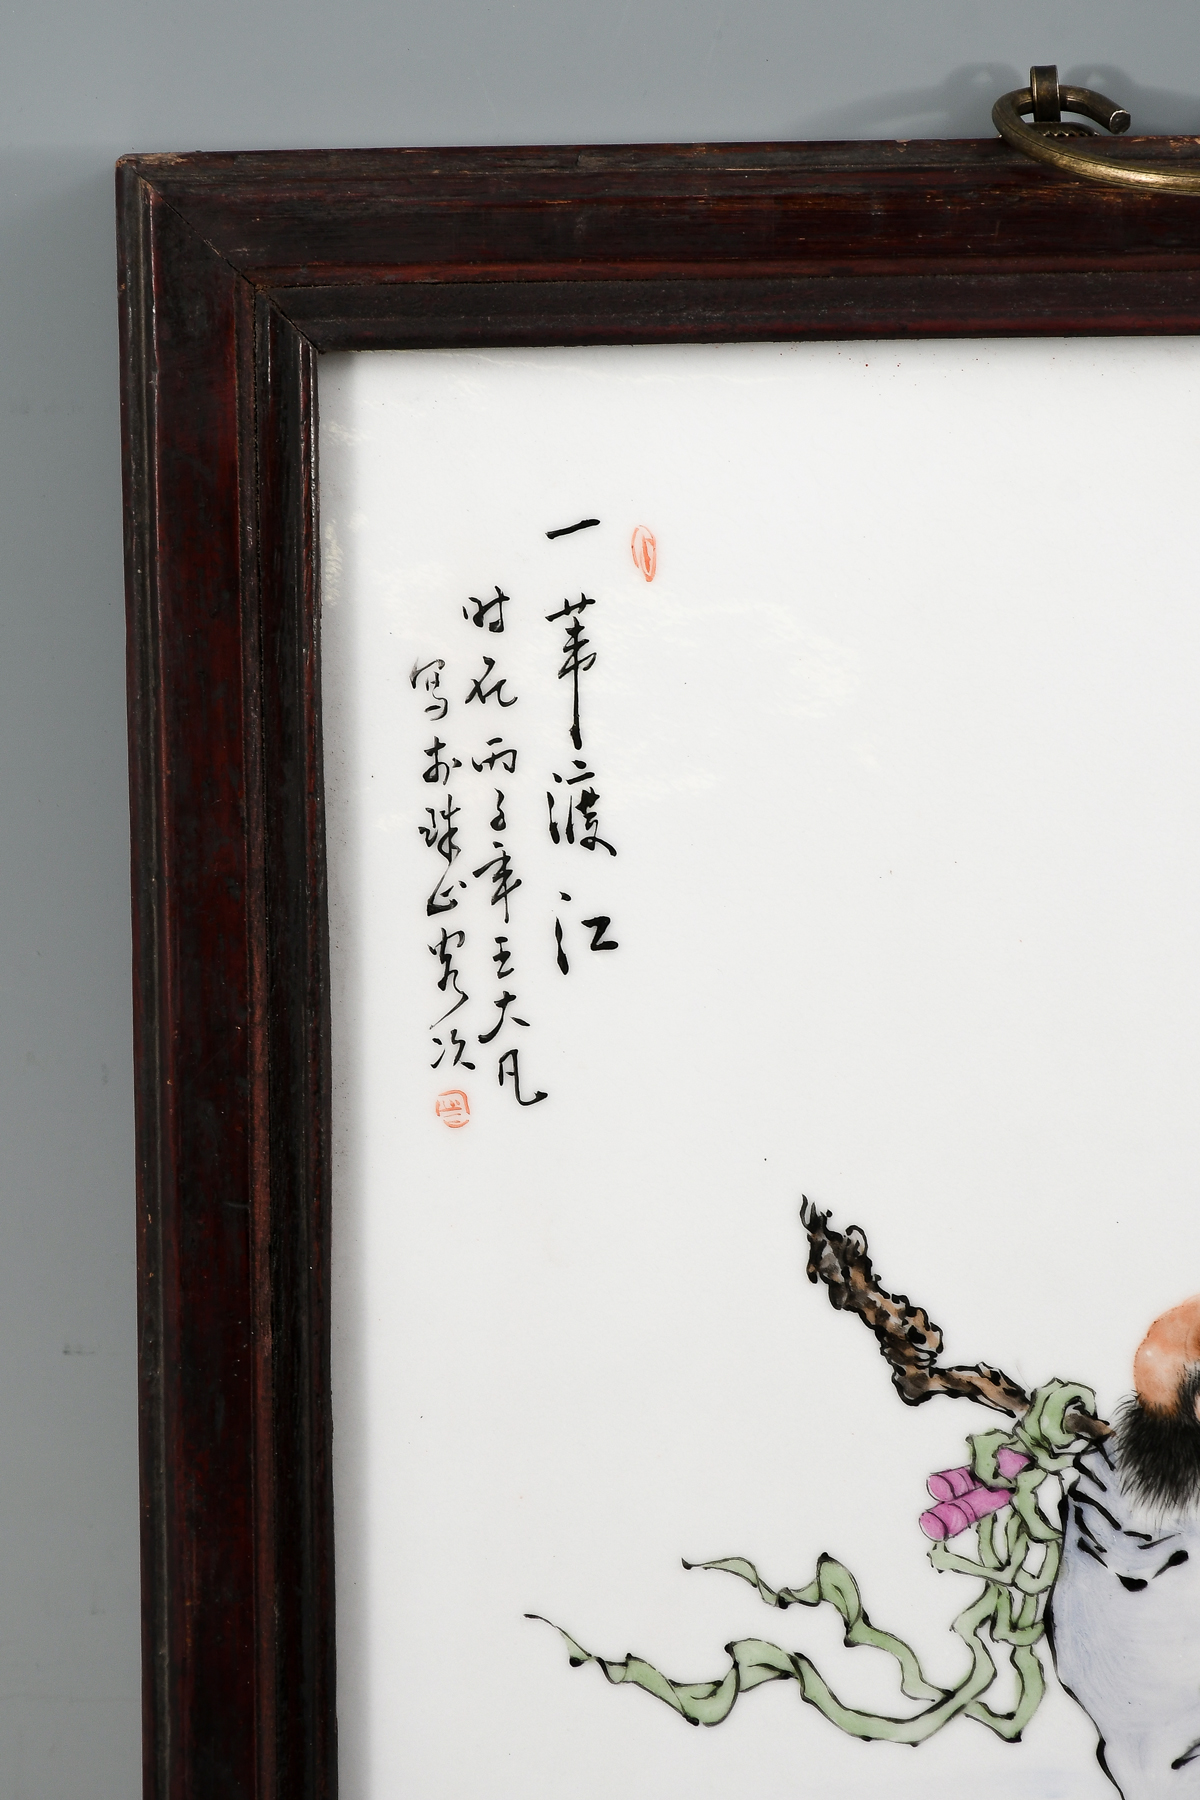 一苇渡江
时在丙子年王大凡
写于珠山客次